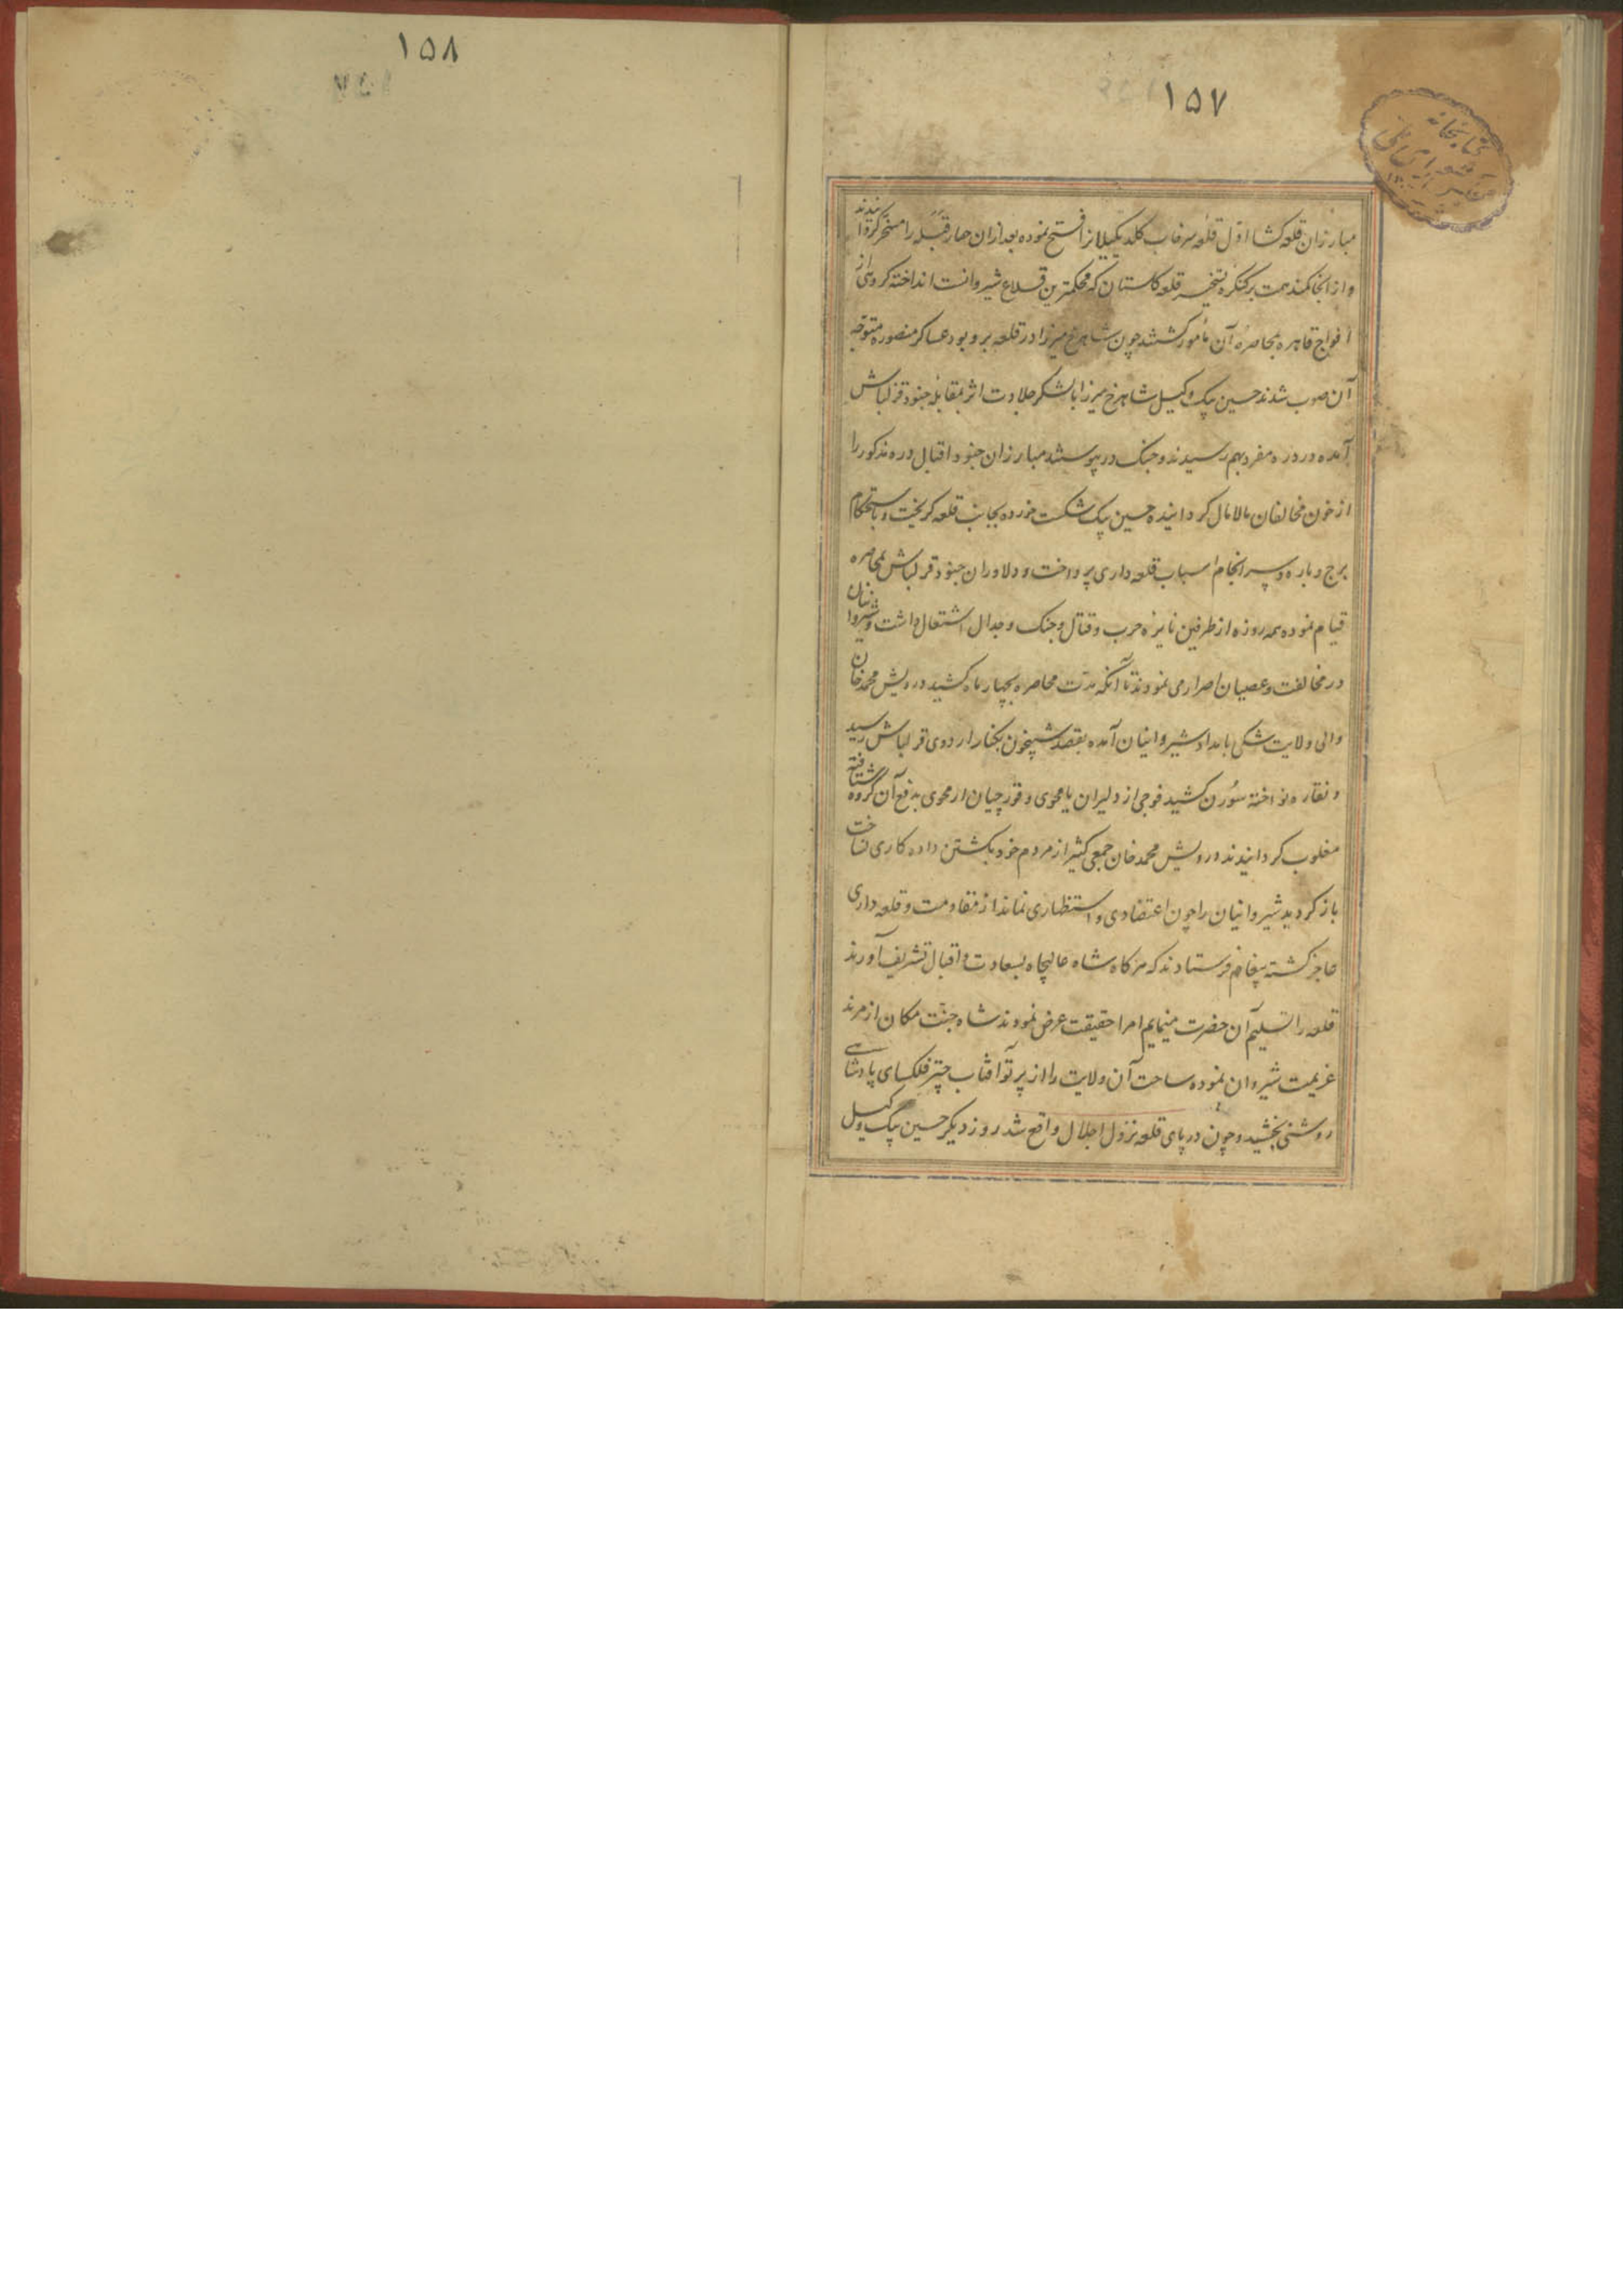 ۱۵۷
کتابخانه
مجلس شورای ملی
مبارزان قلعه کشا اوّل قلعه سرخاب کلدیکیلانرا فتح نموده بعد ازان حصار قبله را مسخر کردانیدند
و از انجا کمند همت بر کنکره تسخیر قلعه کلستان که محکمترین قلاع شیروانست انداخته کروهی از
افواج قاهره بمحاصرهٔ آن مأمور کشتند چون شاهرخ میرزا در قلعه بر و بود عساکر منصوره متوجّه
آن صوب شدند حسین بیک وکیل شاهرخ میرزا بالشکر جلادت اثر بمقابله جنود قزلباش
آمده در دره مفرد بهم رسیدند و جنک در پیوستند مبارزان جنود اقبال دره مذکور را
از خون مخالفان مالامال کردانیده حسین بیک شکست خورده بجانب قلعه کریخت و باستحکام
برج و باره و سرانجام اسباب قلعه داری پرداخت و دلاوران جنود قزلباش بمحاصره
قیام نموده همه روزه از طرفین نایره حرب و قتال و جنک و جدال اشتعال داشت و شیروانیان
در مخالفت و عصیان اصرار می نمودند تا آنکه مدّت محاصره بچهار ماه کشید درویش محمد خان
والی ولایت شکی بامداد شیروانیان آمده بقصد شپیخون بکنار اردوی قزلباش رسید
و نقاره نواخته سُورن کشید فوجی از دلیران یا محوی و قورچیان ار محوی بدفع آن کروه شتافته
مغلوب کردانیدند درویش محمد خان جمعی کثیر از مردم خود بکشتن داده کاری نساخت
باز کردید شیروانیان را چون اعتضادی و استظهاری نماند از مقاومت و قلعه داری
عاجز کشته پیغام فرستادند که هرکاه شاه عالیجاه بسعادت و اقبال تشریف آورند
قلعه را تسلیم آن حضرت مینمایم امرا حقیقت عرض نمودند شاه جنّت مکان از مرند
عزیمت شیروان نموده ساحت آن ولایت را از پرتو آفتاب چتر فلکسای پادشاهی
روشنی بخشید و چون در پای قلعه نزول اجلال واقع شد روز دیکر حسین بیک وکیل
۱۵۸